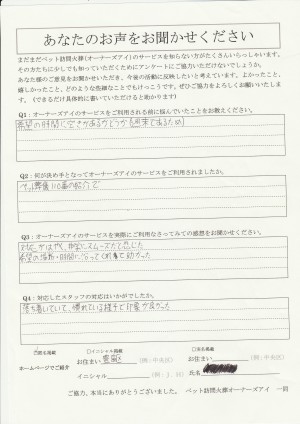 あなたのお声をお聞かせください
まだまだペット訪問火葬(オーナーズアイ)のサービスを知らない方がたくさんいらっしゃいます。
その方たちに少しでも知っていただくためにアンケートにご協力いただけないでしょうか。
あなた様のご意見をお聞かせいただき、今後の活動に反映したいと考えています。よかったこと、
嬉しかったこと、どのような些細なことでもけっこうです。ぜひご協力をよろしくお願いいたしま
す。(できるだけ具体的に書いていただけると助かります)
Q1:オーナーズアイのサービスをご利用される前に悩んでいたことをお教えください。
希望の時間に空きがあるかどうか(週末であるため)
Q2:何が決め手となってオーナーズアイのサービスをご利用されましたか。
ペット葬儀110番の紹介で
Q3:オーナーズアイのサービスを実際にご利用なさってみての感想をお聞かせください
対応がはやく、非常にスムーズだと感じた
希望の場所・時間に沿ってくれて助かった
Q4:対応したスタッフの対応はいかがでしたか。
落ち着いていて、慣れている様子で印象が良かった
□匿名掲載
□イニシャル掲載
□実名掲載
ホームページでご紹介
お住まい 豊島区 (例:中央区)
お住まい (例:中央区)
イニシャル
氏名
ご協力、本当にありがとうございました。 ペット訪問火葬オーナーズアイ 一同